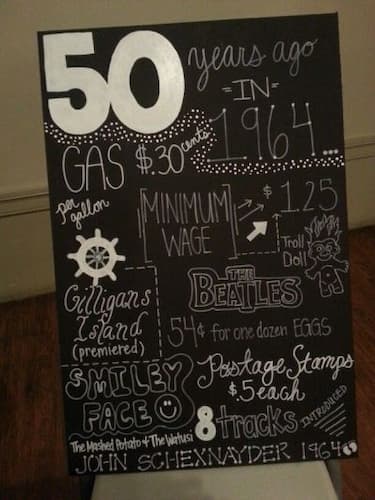 50 years ago
IN
1964...
GAS $.30 cents
per gallon
MINIMUM WAGE
$1.25
Troll Doll
THE BEATLES
Gilligans Island
(premiered)
54¢ for one dozen EGGS
SMILEY FACE
Postage Stamps
$.5 each
8 tracks INTRODUCED
The Mashed Potato & The Watusi
JOHN SCHEXNAYDER 1964